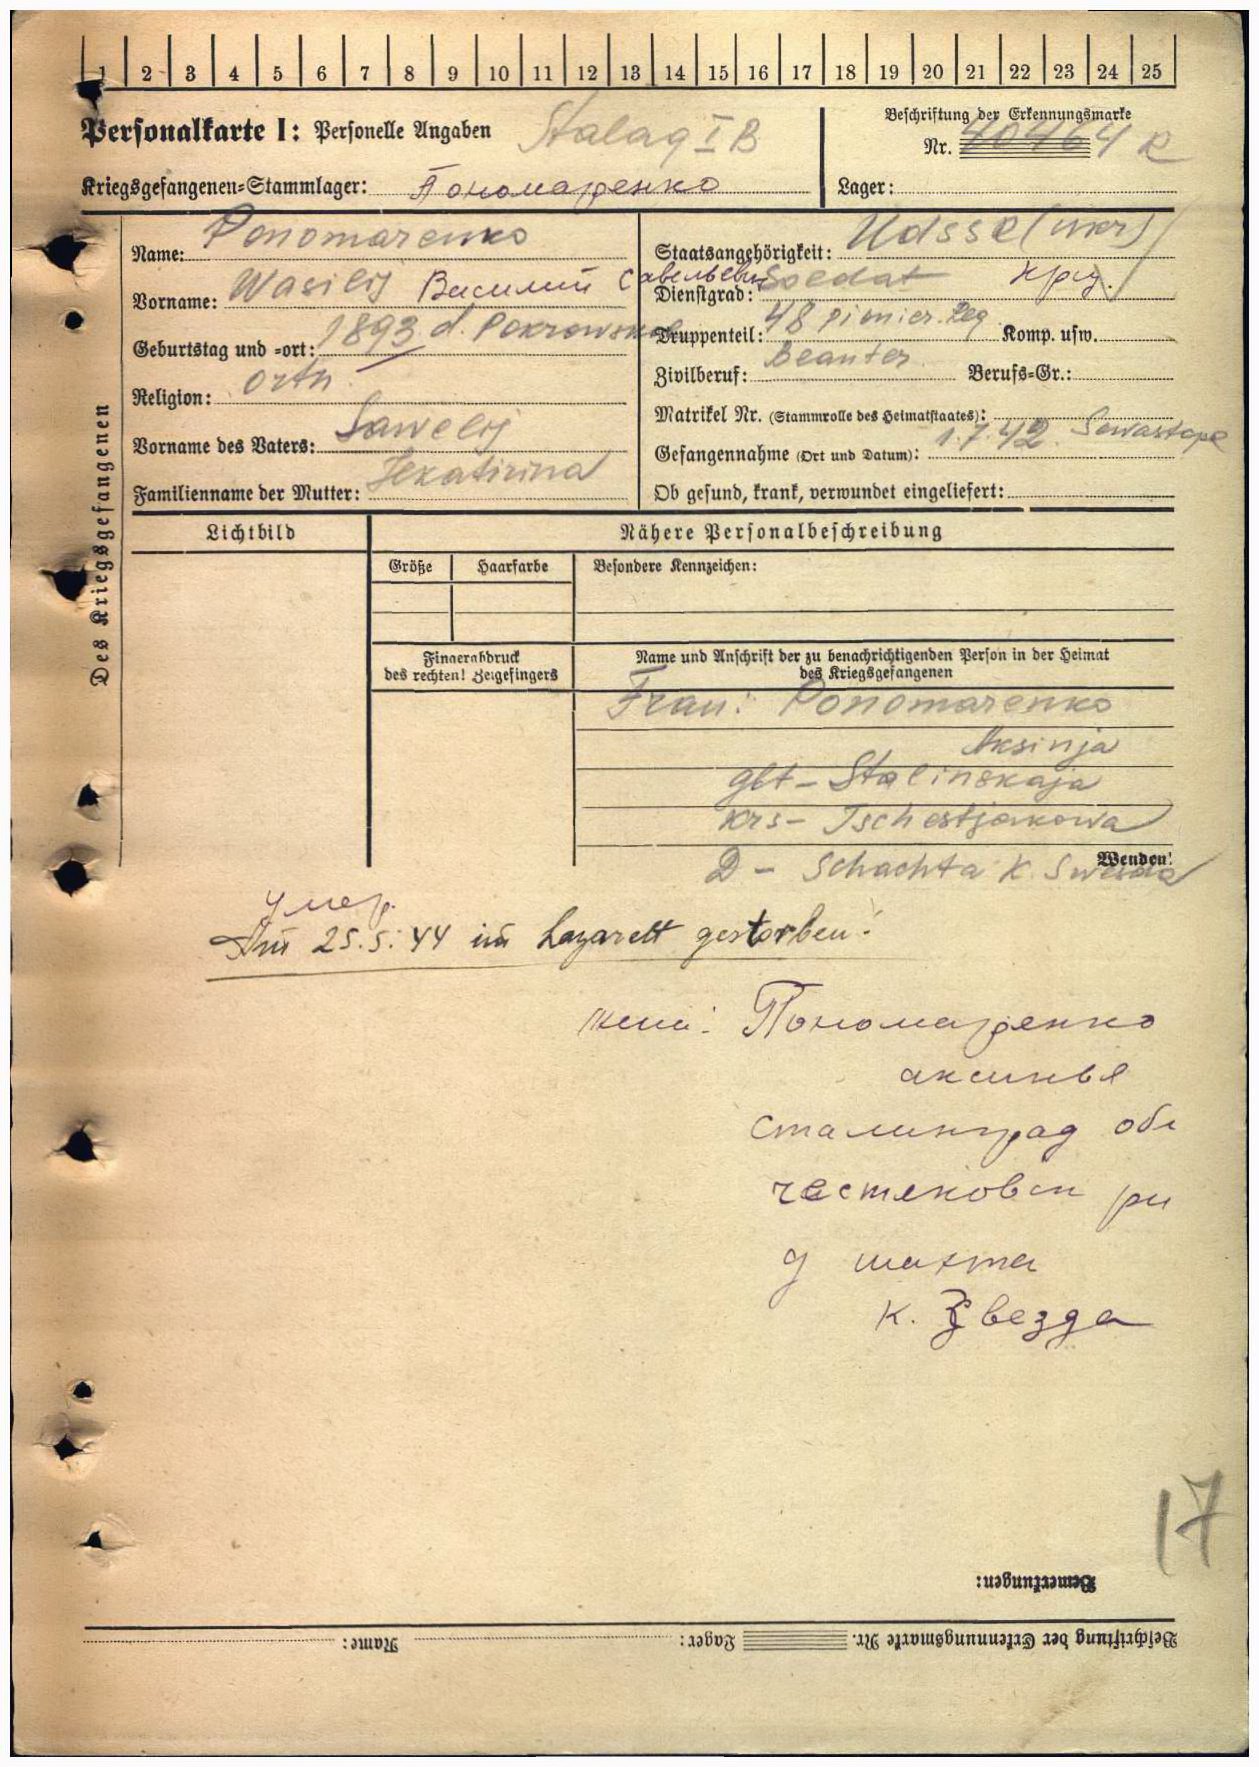 1 2 3 4 5 6 7 8 9 10 11 12 13 14 15 16 17 18 19 20 21 22 23 24 25
Personalkarte I: Personelle Angaben Stalag I B
Beschriftung der Erkennungsmarke
Nr. 40464 R
Kriegsgefangenen-Stammlager: Пономаренко
Lager:
Des Kriegsgefangenen
Name: Ponomarenko
Vorname: Wasilij Василий Савельевич
Geburtstag und -ort: 1893 d. Pokrowskoe
Religion: orth.
Vorname des Vaters: Sawelij
Familienname der Mutter: Jekatirina
Staatsangehörigkeit: UdSSR (ukr)
Dienstgrad: Soldat крц.
Truppenteil: 48 pionier. Reg Komp. usw.
Zivilberuf: Beamter Berufs-Gr.:
Matrikel Nr. (Stammrolle des Heimatstaates):
Gefangennahme (Ort und Datum): 1.7.42. Sewastopol
Ob gesund, krank, verwundet eingeliefert:
Lichtbild
Nähere Personalbeschreibung
Größe Haarfarbe Besondere Kennzeichen:
Fingerabdruck
des rechten! Zeigefingers
Name und Anschrift der zu benachrichtigenden Person in der Heimat
des Kriegsgefangenen
Frau: Ponomarenko
Aksinja
gbt - Stalinskaja
Krs - Tschestjakowa
D - Schachta K. Swesda
Wenden!
умер.
Am 25.5.44 im Lazarett gestorben!
жена: Пономаренко
аксинья
сталинград обл
честяковск рн
д шахта
к. Звезда
17
Bemerkungen:
Beschriftung der Erkennungsmarke Nr. Lager: Name: